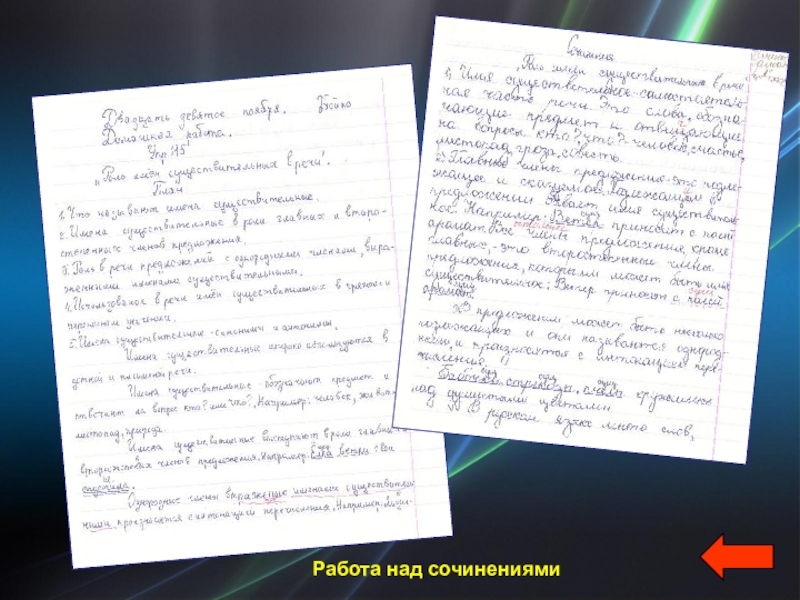 Двадцать девятое ноября.
Домашняя работа.
Упр 115
"Роль имён существительных в речи".
План
1. Что называют имена существительные.
2. Имена существительные в роли главных и второ-
степенных членов предложения.
3. Роль в речи предложений с однородными членами, выра-
женными именами существительными.
4. Использование в речи имён существительных в прямом и
переносном значении.
5. Имена существительные - синонимы и антонимы.
Имена существительные широко используются в
устной и письменной речи.
Имена существительные обозначают предмет и
отвечают на вопрос кто? или что?. Например: человек,
листопад, природа.
Имена существительные выступают в роли главных и
второстепенных членов предложения. Например:
Однородные члены выраженные именами существитель-
ными, произносятся с интонацией перечисления. Например:
Сочинение
"Роль имени существительного в речи
1) Имя существительное - самостоятель-
ная часть речи. Это слова, обозна-
чающие предмет и отвечающие
на вопросы кто? что? - человек, счастье,
листопад, гроза, совесть.
2. Главные члены предложения - это подле-
жащее и сказуемое. Подлежащим в
предложении бывает имя существитель-
ное. Например: Ветер приносит с полей
аромат. Все члены предложения, кроме
главных, - это второстепенные члены
предложения, которыми может быть имя
существительное: Ветер приносит с полей
аромат.
3) В предложении может быть несколько
подлежащих и они называются однород-
ными и произносятся с интонацией пере-
числения.
Бабочки, стрекозы, пчёлы кружились
над душистыми цветами.
В русском языке много слов,
Работа над сочинениями